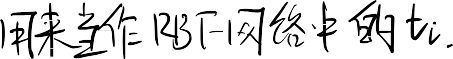 用来当作RBF网络中的ti.